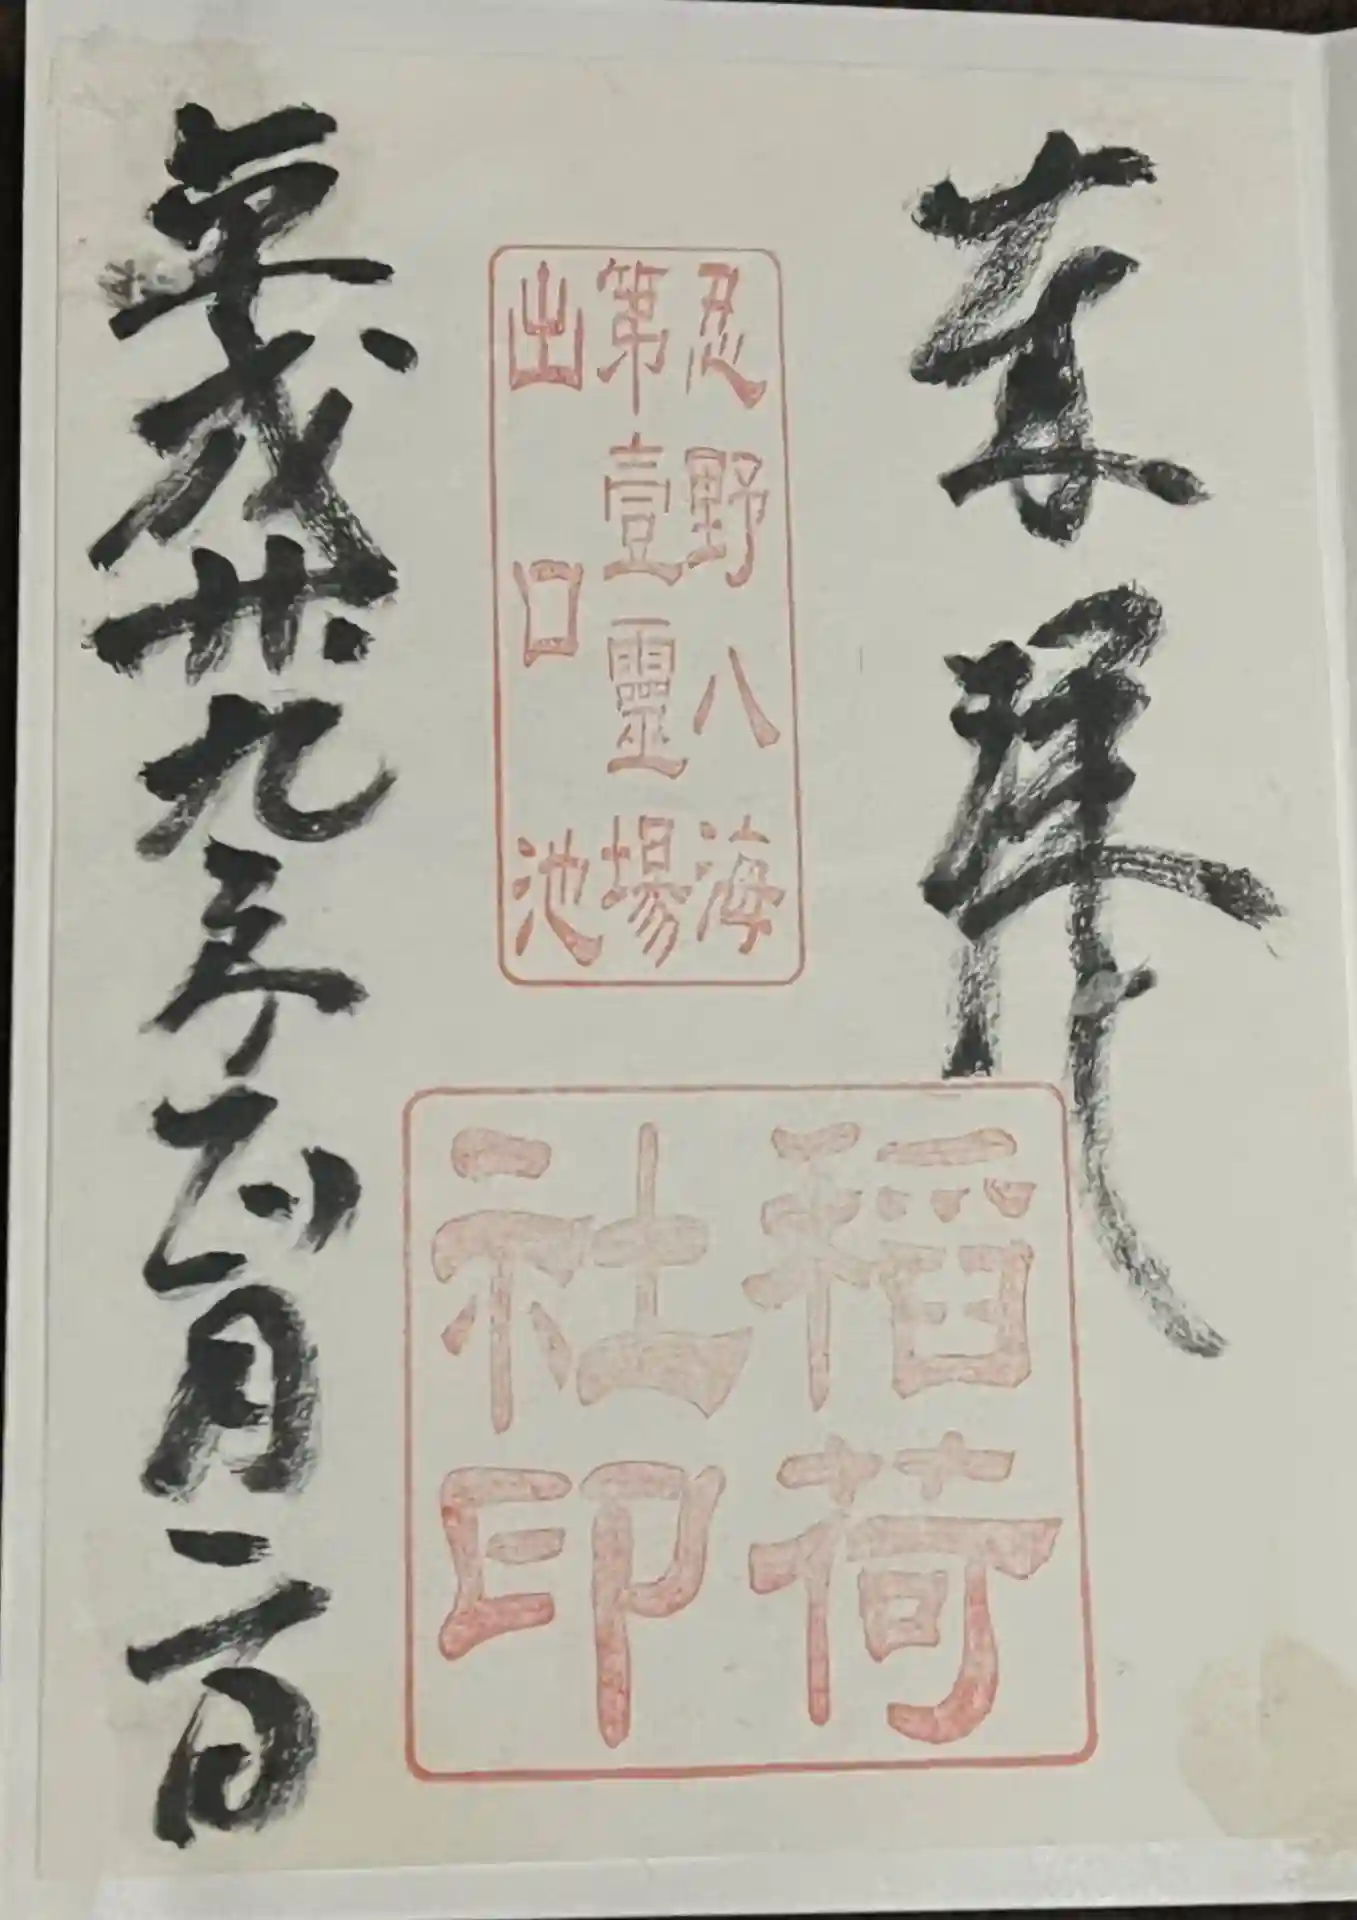 奉拝
忍野八海
第壹靈場
出口池
稻荷
社印
平成廿九年 月二日